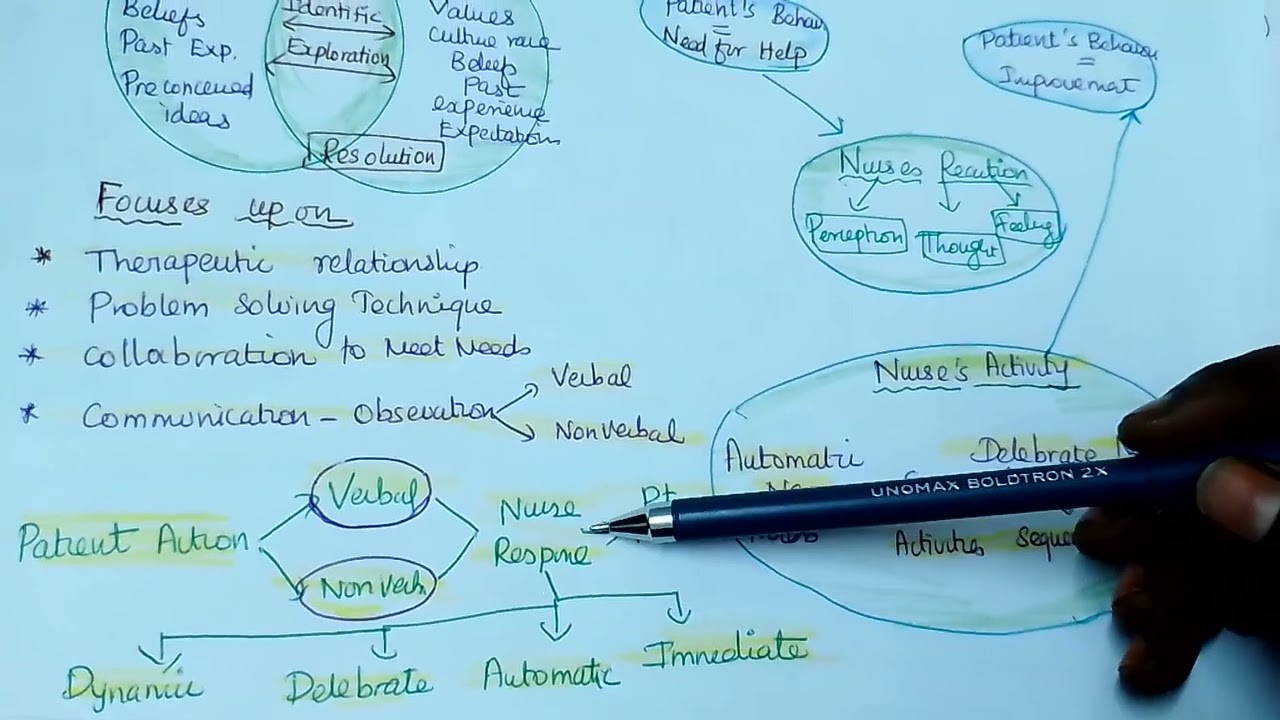 Beliefs
Past Exp.
Preconceived
ideas
Identific
Exploration
Values
Culture race
Beleifs
Past
experience
Expectation
Resolution
Focuses upon
* Therapeutic relationship
* Problem Solving Technique
* Collaboration to Meet Needs
* Communication - Observation
Verbal
Nonverbal
Patient Action
Verbal
Non verb
Nurse
Response
Pt
Dynamic
Delebrate
Automatic
Immediate
Patient's Behav
=
Need for Help
Nurses Reaction
Perception
Thought
Feeling
Patient's Behavior
=
Improvement
Nurse's Activity
Automatic
Delebrate
Activities Seque
UNOMAX BOLDTRON 2X